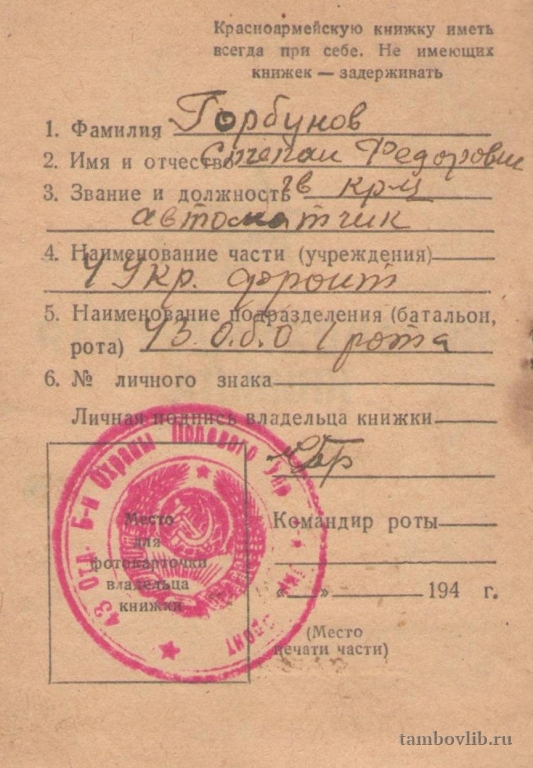 Красноармейскую книжку иметь
всегда при себе. Не имеющих
книжек — задерживать
1. Фамилия Горбунов
2. Имя и отчество Степан Федорович
3. Звание и должность гв кр-ц
автоматчик
4. Наименование части (учреждения)
4 Укр. фронт
5. Наименование подразделения (батальон,
рота) 43 О.б.О 1 рота
6. № личного знака
Личная подпись владельца книжки
Место
для
фотокарточки
владельца
книжки
43 Отд. Б-н Охраны Полевого Упр
Фронт
Командир роты
„ “ 194 г.
(Место
печати части)
tambovlib.ru